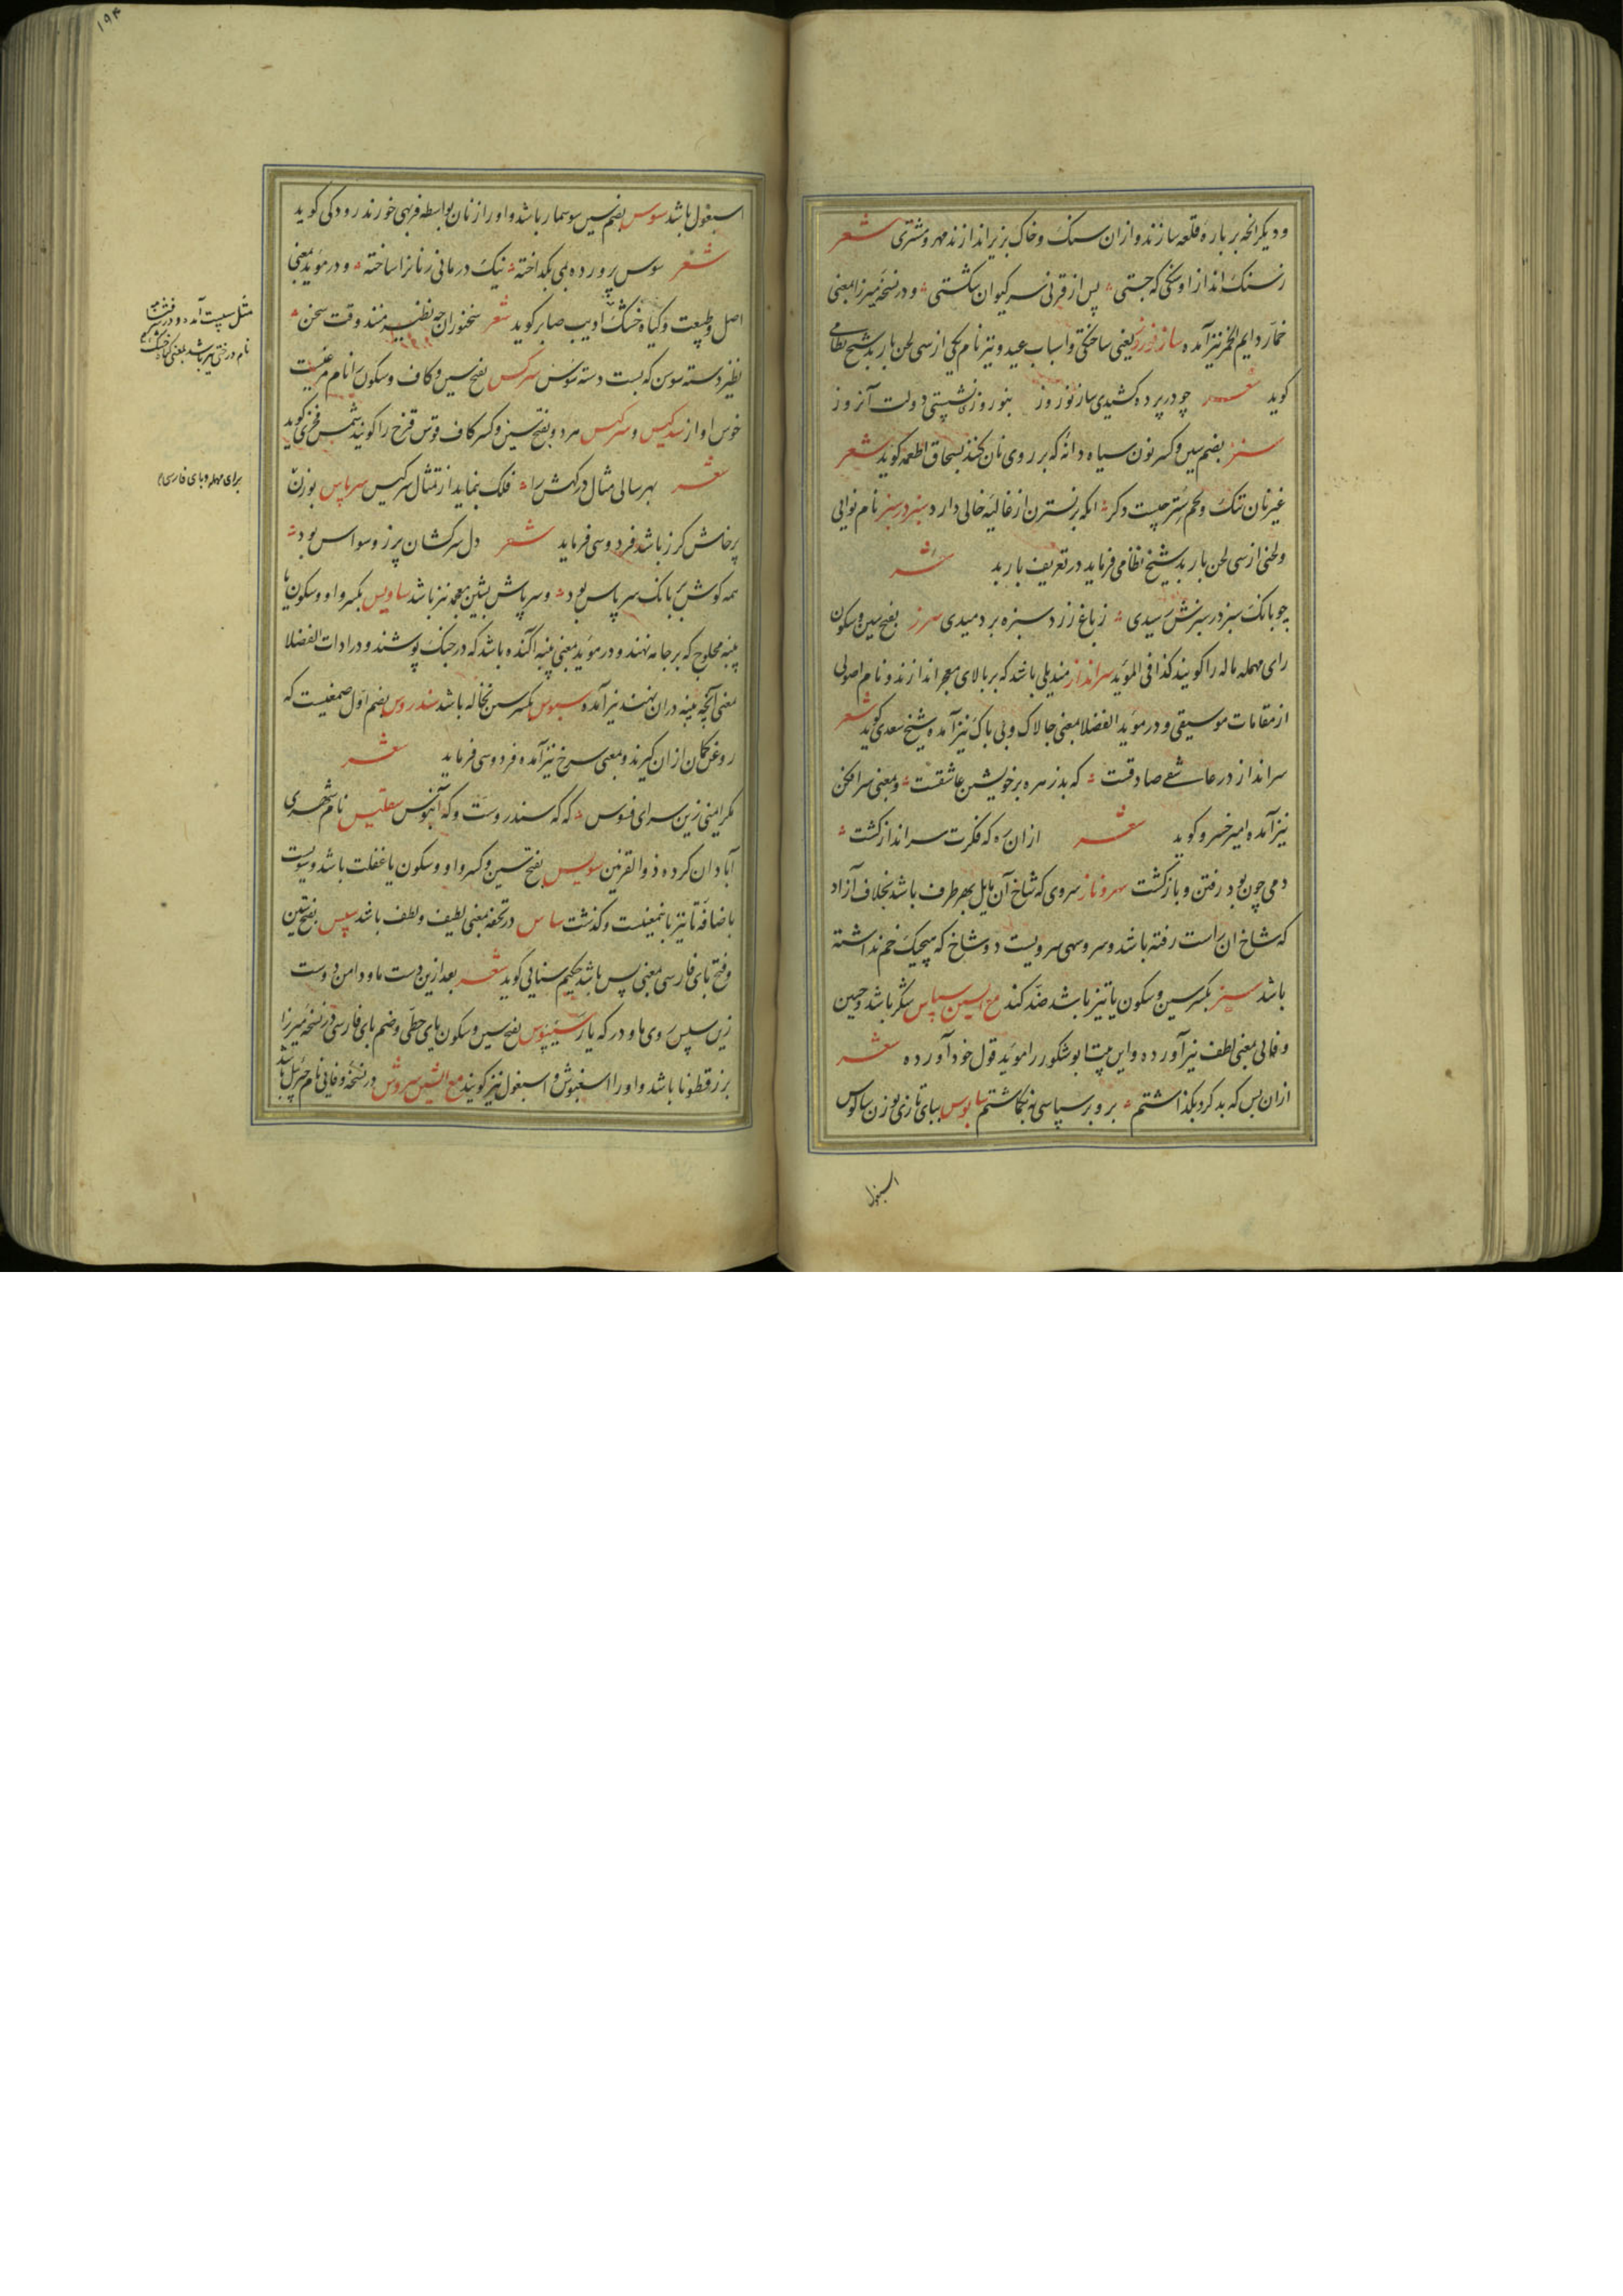 ودیکر انچه بر باره قلعه سازند و ازان سنک و خاک بزیر اندازند مهر و مشتری شعر
ز سنک انداز او سنکی که جستی پس از قرنی سر کیوان شکستی و در نسخه میرزا بمعنی
خمار دایم الخمر نیز آمده ساز نوروز یعنی ساختکی و اسباب عید و نیز نام یکی از سی لحن باربد شیخ نظامی
کوید شعر چو در پرده کشیدی ساز نوروز بنوروزی نشستی دولت آنروز
سنز بضم سین و کسر نون سیاه دانه که بر روی نان کنند بسحاق اطعمه کوید شعر
غیر نان تنک و لحم شتر چیست دکر انکه بر نسترن از غالیه خالی دارد سبز در سبز نام نوایی
و لحنی از سی لحن باربد شیخ نظامی فرماید در تعریف باربد شعر
چو بانک سبز در سبزش رسیدی ز باغ زرد سبزه بر دمیدی سرز بفتح سین و سکون
رای مهمله ماله را کویند کذا فی المؤید سرانداز مندیلی باشد که بر بالای معجر اندازند و نام اصولی
از مقامات موسیقی و در مؤید الفضلا بمعنی چالاک و بی باک نیز آمده شیخ سعدی کوید شعر
سرانداز در عاشقی صادقست که بد زهره بر خویشتن عاشقست و بمعنی سرافکن
نیز آمده امیر خسرو کوید شعر ازان ره که فکرت سرانداز کشت
دمی چون بود رفتن و بازکشت سرو ناز سروی که شاخ آن مایل بهر طرف باشد بخلاف آزاد
که شاخ ان راست رفته باشد و سرو سهی سرویست دو شاخ که هیچیک خم نداشته
باشد سیز بکسر سین و سکون یا تیز باشد ضد کند مع السین سپاس شکر باشد و حسین
وفائی بمعنی لطف نیز آورده و این بیت ابو شکور را مؤید قول خود آورده شعر
ازان پس که بد کرد بکذاشتم برو بر سپاسی نه بکماشتم سابوس ببای تازی بوزن سالوس
اسبغول
۱۹۴
اسبغول باشد سوس بضم سین سوسمار باشد و او را زنان بواسطه فربهی خورند رودکی کوید
شعر سوس پرورده بمی بکداخته نیک درمانی زنانرا ساخته و در مؤید بمعنی
اصل و طبیعت و کیاه خشک ادیب صابر کوید شعر سخنوران چه نظیر منند وقت سخن
نظیر دسته سوسن که بست دسته سوس سرکس بفتح سین و کاف و سکون را نام مرغیست
خوس اواز سرکیس و سرکس مرد و بفتح سین و کسر کاف قوس قزح را کویند شمس فخری کوید
شعر بهر سالی مثال درکهش را فلک بنماید از تمثال سرکیس سرپاس بوزن
پرخاش کرز باشد فردوسی فرماید شعر دل سرکشان پر ز وسواس بود
همه کوش پر بانک سرپاس بود و سرپاش بشین معجمه نیز باشد ساویس بکسر واو و سکون یا
پنبه محلوج که بر جامه نهند و در مؤید بمعنی پنبه اکنده باشد که در جنک پوشند و در ادات الفضلا
بمعنی آنچه پنبه دران نهند نیز آمده سبوس بکسر سین نخاله باشد سندروس بضم اول صمغیست که
روغن کمان ازان کیرند و بمعنی سرخ نیز آمده فردوسی فرماید شعر
مکر ایمنی زین سرای فسوس که که سندروست و که آبنوس سقلیس نام شهری
آبادان کرده ذوالقرنین سویس بفتح سین و کسر واو و سکون یا غفلت باشد و سویست
باضافه تا نیز باینمعنیست و کذشت ساس در تحفه بمعنی لطیف و لطف باشد سپس بفتح سین
و فتح بای فارسی بمعنی پس باشد حکیم سنایی کوید شعر بعد ازین دست ما و دامن دوست
زین سپس روی ما و در که یار سیپوس بفتح سین و سکون یای حطی و ضم بای فارسی در نسخه میرزا
بزرقطونا باشد و او را اسبغوش و اسبغول نیز کویند مع الشین سروش در نسخه وفائی نام جبرئیل باشد
مثل سیت آمده و در
نام درختی نیز باشد بمعنی کیاه خشک
برای مهمله و بای فارسی